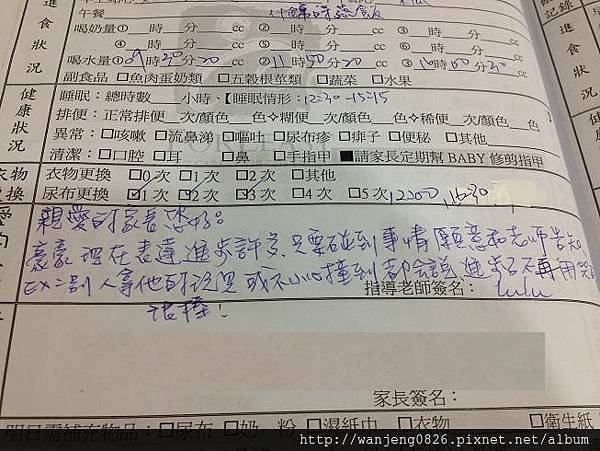 午餐
進食狀況
喝奶量① 時 分 cc ② 時 分 cc ③ 時 分 cc
④ 時 分 cc ⑤ 時 分 cc ⑥ 時 分 cc
喝水量① 09時30分20cc ② 11時50分20cc ③
副食品 □魚肉蛋奶類 □五穀根莖類 □蔬菜 □水果
健康狀況
睡眠：總時數 小時、【睡眠情形：12:30-15:15
排便：正常排便 次/顏色 色✧糊便 次/顏色 色✧稀便 次/顏色
異常：□咳嗽 □流鼻涕 □嘔吐 □尿布疹 □痱子 □便秘 □其他
清潔：□口腔 □耳 □鼻 □手指甲 ■請家長定期幫BABY修剪指甲
衣物更換
衣物更換 □0次 □1次 □2次 □其他
尿布更換 ☑1次 ☑2次 ☑3次 □4次 □5次
親愛的家長您好：
豪豪現在表達進步許多，只要碰到事情願意和老師告知
EX：別人拿他的玩具或不小心撞到都會說進步了不再用哭
指導老師簽名： lulu
棒！
家長簽名：
明日需補充物品：□尿布 □奶 粉 □濕紙巾 □衣物 □衛生紙
http://wanjeng0826.pixnet.net/album